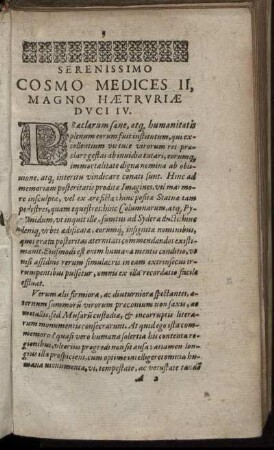 SERENISSIMO
COSMO MEDICES II,
MAGNO HÆTRVRIÆ
DVCI IV.
PRæclarum sane, atq, humanitatis
plenum eorum fuit institutum, qui ex-
cellentium virtute virorum res præ-
clare gestas ab inuidia tutari, eorumq,
immortalitate digna nomina ab obli-
uione, atq, interitu vindicare conati sunt. Hinc ad
memoriam posteritatis proditæ Imagines, vel mar-
more insculptæ, vel ex ære fictæ; hinc positæ Statuæ tam
pedestres, quam equestres; hinc Columnarum, atq, Py-
ramidum, vt inquit ille, sumtus ad Sydera ducti; hinc
deniq, vrbes ædificatæ, eorumq, insignitæ nominibus,
quos grata posteritas æternitati commendandos existi-
mauit. Eiusmodi est enim humanæ mentis conditio, vt
nisi assiduis rerum simulacris in eam extrinsecus ir-
rumpentibus pulsetur, omnis ex illa recordatio facile
effluat.
Verum alij firmiora, ac diuturniora spectantes, æ-
ternum summorum virorum præconium non saxis, ac
metallis, sed Musarum custodiæ, & incorruptis litera-
rum monumentis consecrarunt. At quid ego ista com-
memoro? quasi vero humana solertia his contenta re-
gionibus, vlterius progredi non sit ausa; attamen lon-
gius illa prospiciens, cum optime intelligeret omnia hu-
mana monumenta, vi, tempestate, ac vetustate tandem
A 2